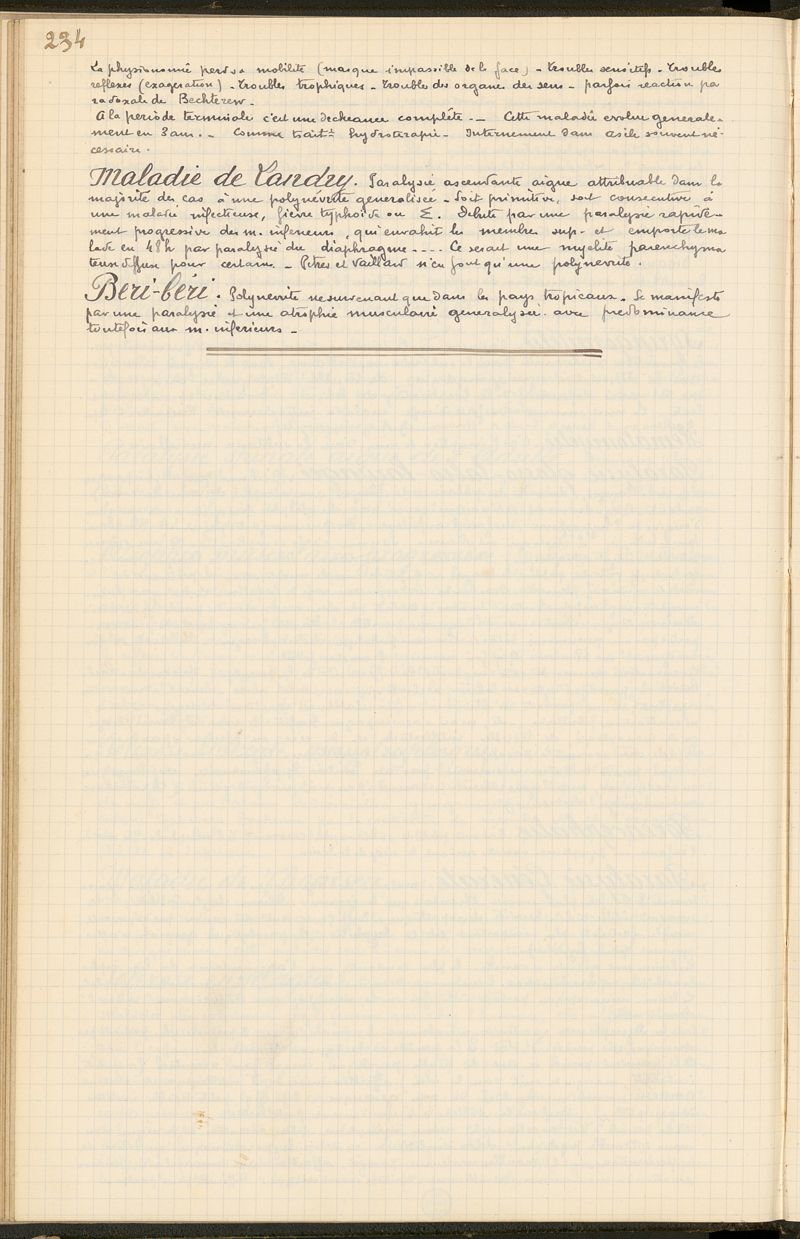 234
La physionomie perd sa mobilité (masque impassible de la face) - troubles sensitifs - troubles
reflexes (exageration) - troubles trophiques - troubles des organe des sens - parfois reaction pa
radoxale de Bechterew -
A la periode terminale c'est une decheance complète. - Cette maladie evolue generale-
ment en 3 ans. - Comme trait.t hydroterapie - Internement dans asile souvent né-
cessaire.
Maladie de Landry. Paralysie ascendante aigue attribuable dans la
majorité des cas à une polynévrite generalisée - Soit primitive, soit consecutive à
une maladie infectieuse, fievre typhoïde ou Σ. Debute par une paralysie rapide-
ment progressive des m. inferieurs, qui envahit les membres sup. et emporte le ma
lade en 48h par paralysie du diaphragme - - - Ce serait une myelite parenchyma
teuse diffuse pour certains - Pitres et Vaillard n'en font qu'une polynevrite.
Béri-béri. Polynevrite ne survenant que dans les pays tropicaux. Se manifeste
par une paralysie et une atrophie musculaire generalysée avec predominance
toutefois aux m. inferieurs -